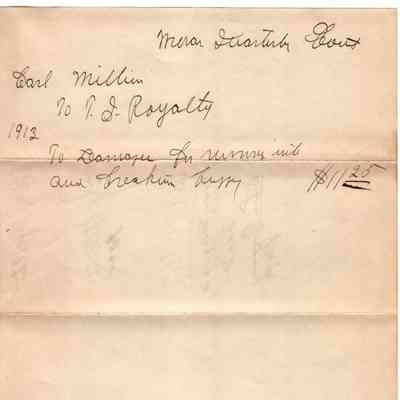 Quarterly Court
Earl Million
To T. J. Royalty
1913
To Damages for running into
and breaking buggy $11 25